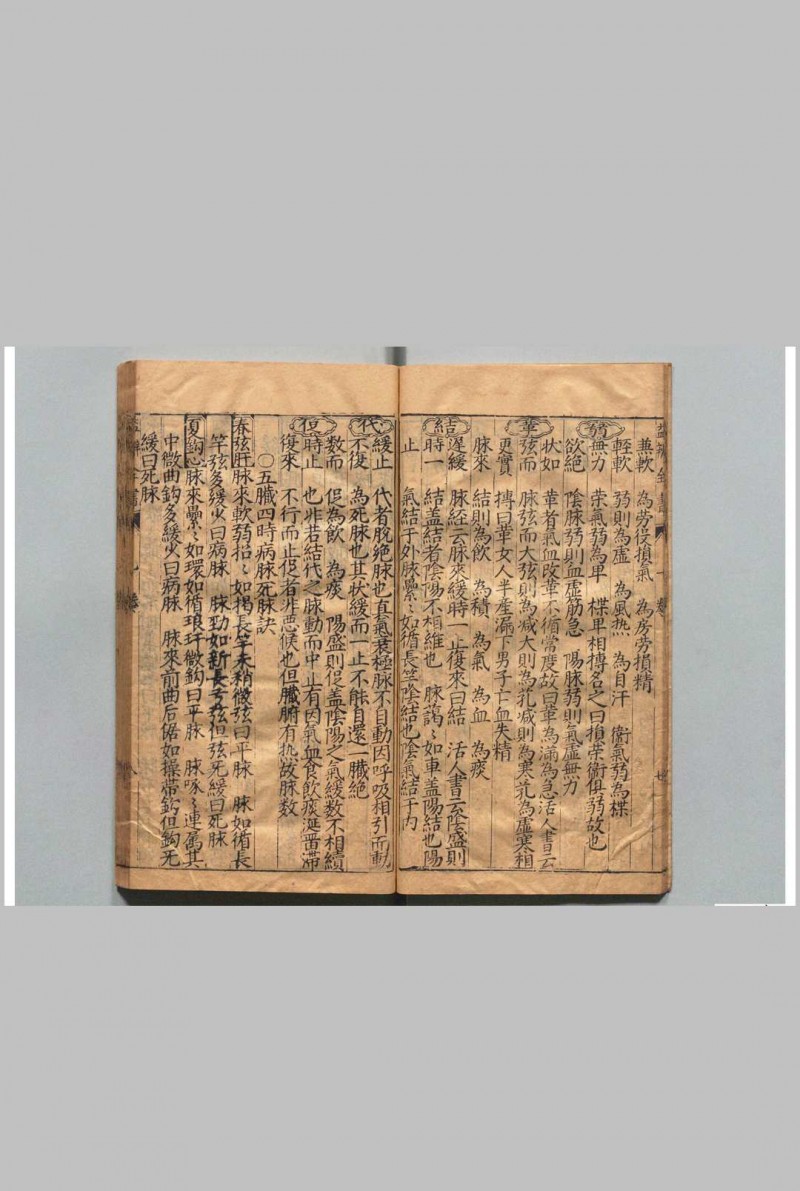 兼軟　為勞役損氣　為房勞損精
輕軟　弱則為虛　為風热　為自汗　衛氣弱為楪
弱
無力　荣氣弱為卑　楪卑相搏名之曰損荣衛俱弱故也
欲絕　陰脉弱則血虛筋急　陽脉弱則氣虛無力
狀如　革者氣血改革不循常度故曰革為滿為急活人書云
革
弦而　脉弦而大弦則為减大則為芤减則為寒芤為虛寒相
更實　摶曰革女人半産漏下男子亡血失精
脉來　結則為飲　為積　為氣　為血　為痰
遲緩　脉經云脉來緩時一止復來曰結　活人書云陰盛則
結
時一　結盖結者陰陽不相維也　脉藹〻如車盖陽結也陽
止　氣結于外脉纍〻如循長竿陰結也陰氣結于内
代
緩止　代者脫絶脉也真氣衰極脉不自動因呼吸相引而動
不復　為死脉也其狀緩而一止不能自還一臓絶
數而　促為飲　為痰　陽盛則促盖陰陽之氣緩数不相續
促
時止　也非若結代之脉動而中止有因氣血食飲痰涎畱滯
復來　不行而止促者非悪候也但臓腑有热故脉数
〇五臓四時病脉死脉訣
春弦肝脉來軟弱招〻如揭長竿末稍微弦曰平脉　脉如循長
竿弦多緩少曰病脉　脉勁如新長弓弦但弦死緩曰死脉
夏鈎心脉來纍〻如環如循琅玕微鈎曰平脉　脉啄〻連属其
中微曲鈎多緩少曰病脉　脉來前曲后倨如操帶鈎但鈎死
緩曰死脉